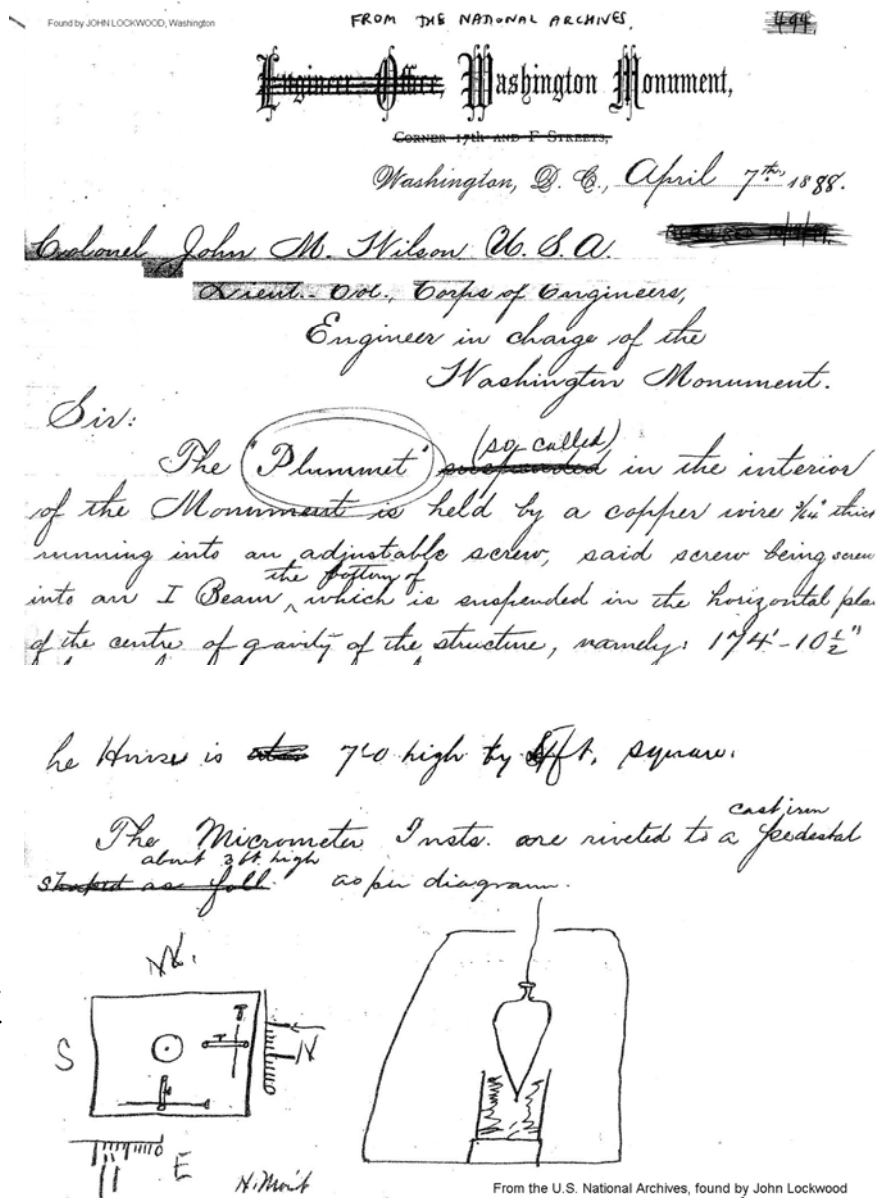 Found by JOHN LOCKWOOD, Washington
FROM THE NATIONAL ARCHIVES.
494
Engineer Office, Washington Monument,
CORNER 17th AND F STREETS,
Washington, D. C., April 7th 1888.
Colonel John M. Wilson U. S. A.
Lieut. Col., Corps of Engineers,
Engineer in charge of the
Washington Monument.
Sir:
The "Plummet" suspended (so called) in the interior
of the Monument is held by a copper wire 3/64" thick
running into an adjustable screw, said screw being screw
into an I Beam, the bottom of which is suspended in the horizontal pla
of the centre of gravity of the structure, namely: 174'-10½"
he House is 7'0 high by ft. square.
The Micrometer Insts. are riveted to a cast iron pedestal
shaped as foll. about 3 ft. high as per diagram.
S
N
E
From the U.S. National Archives, found by John Lockwood